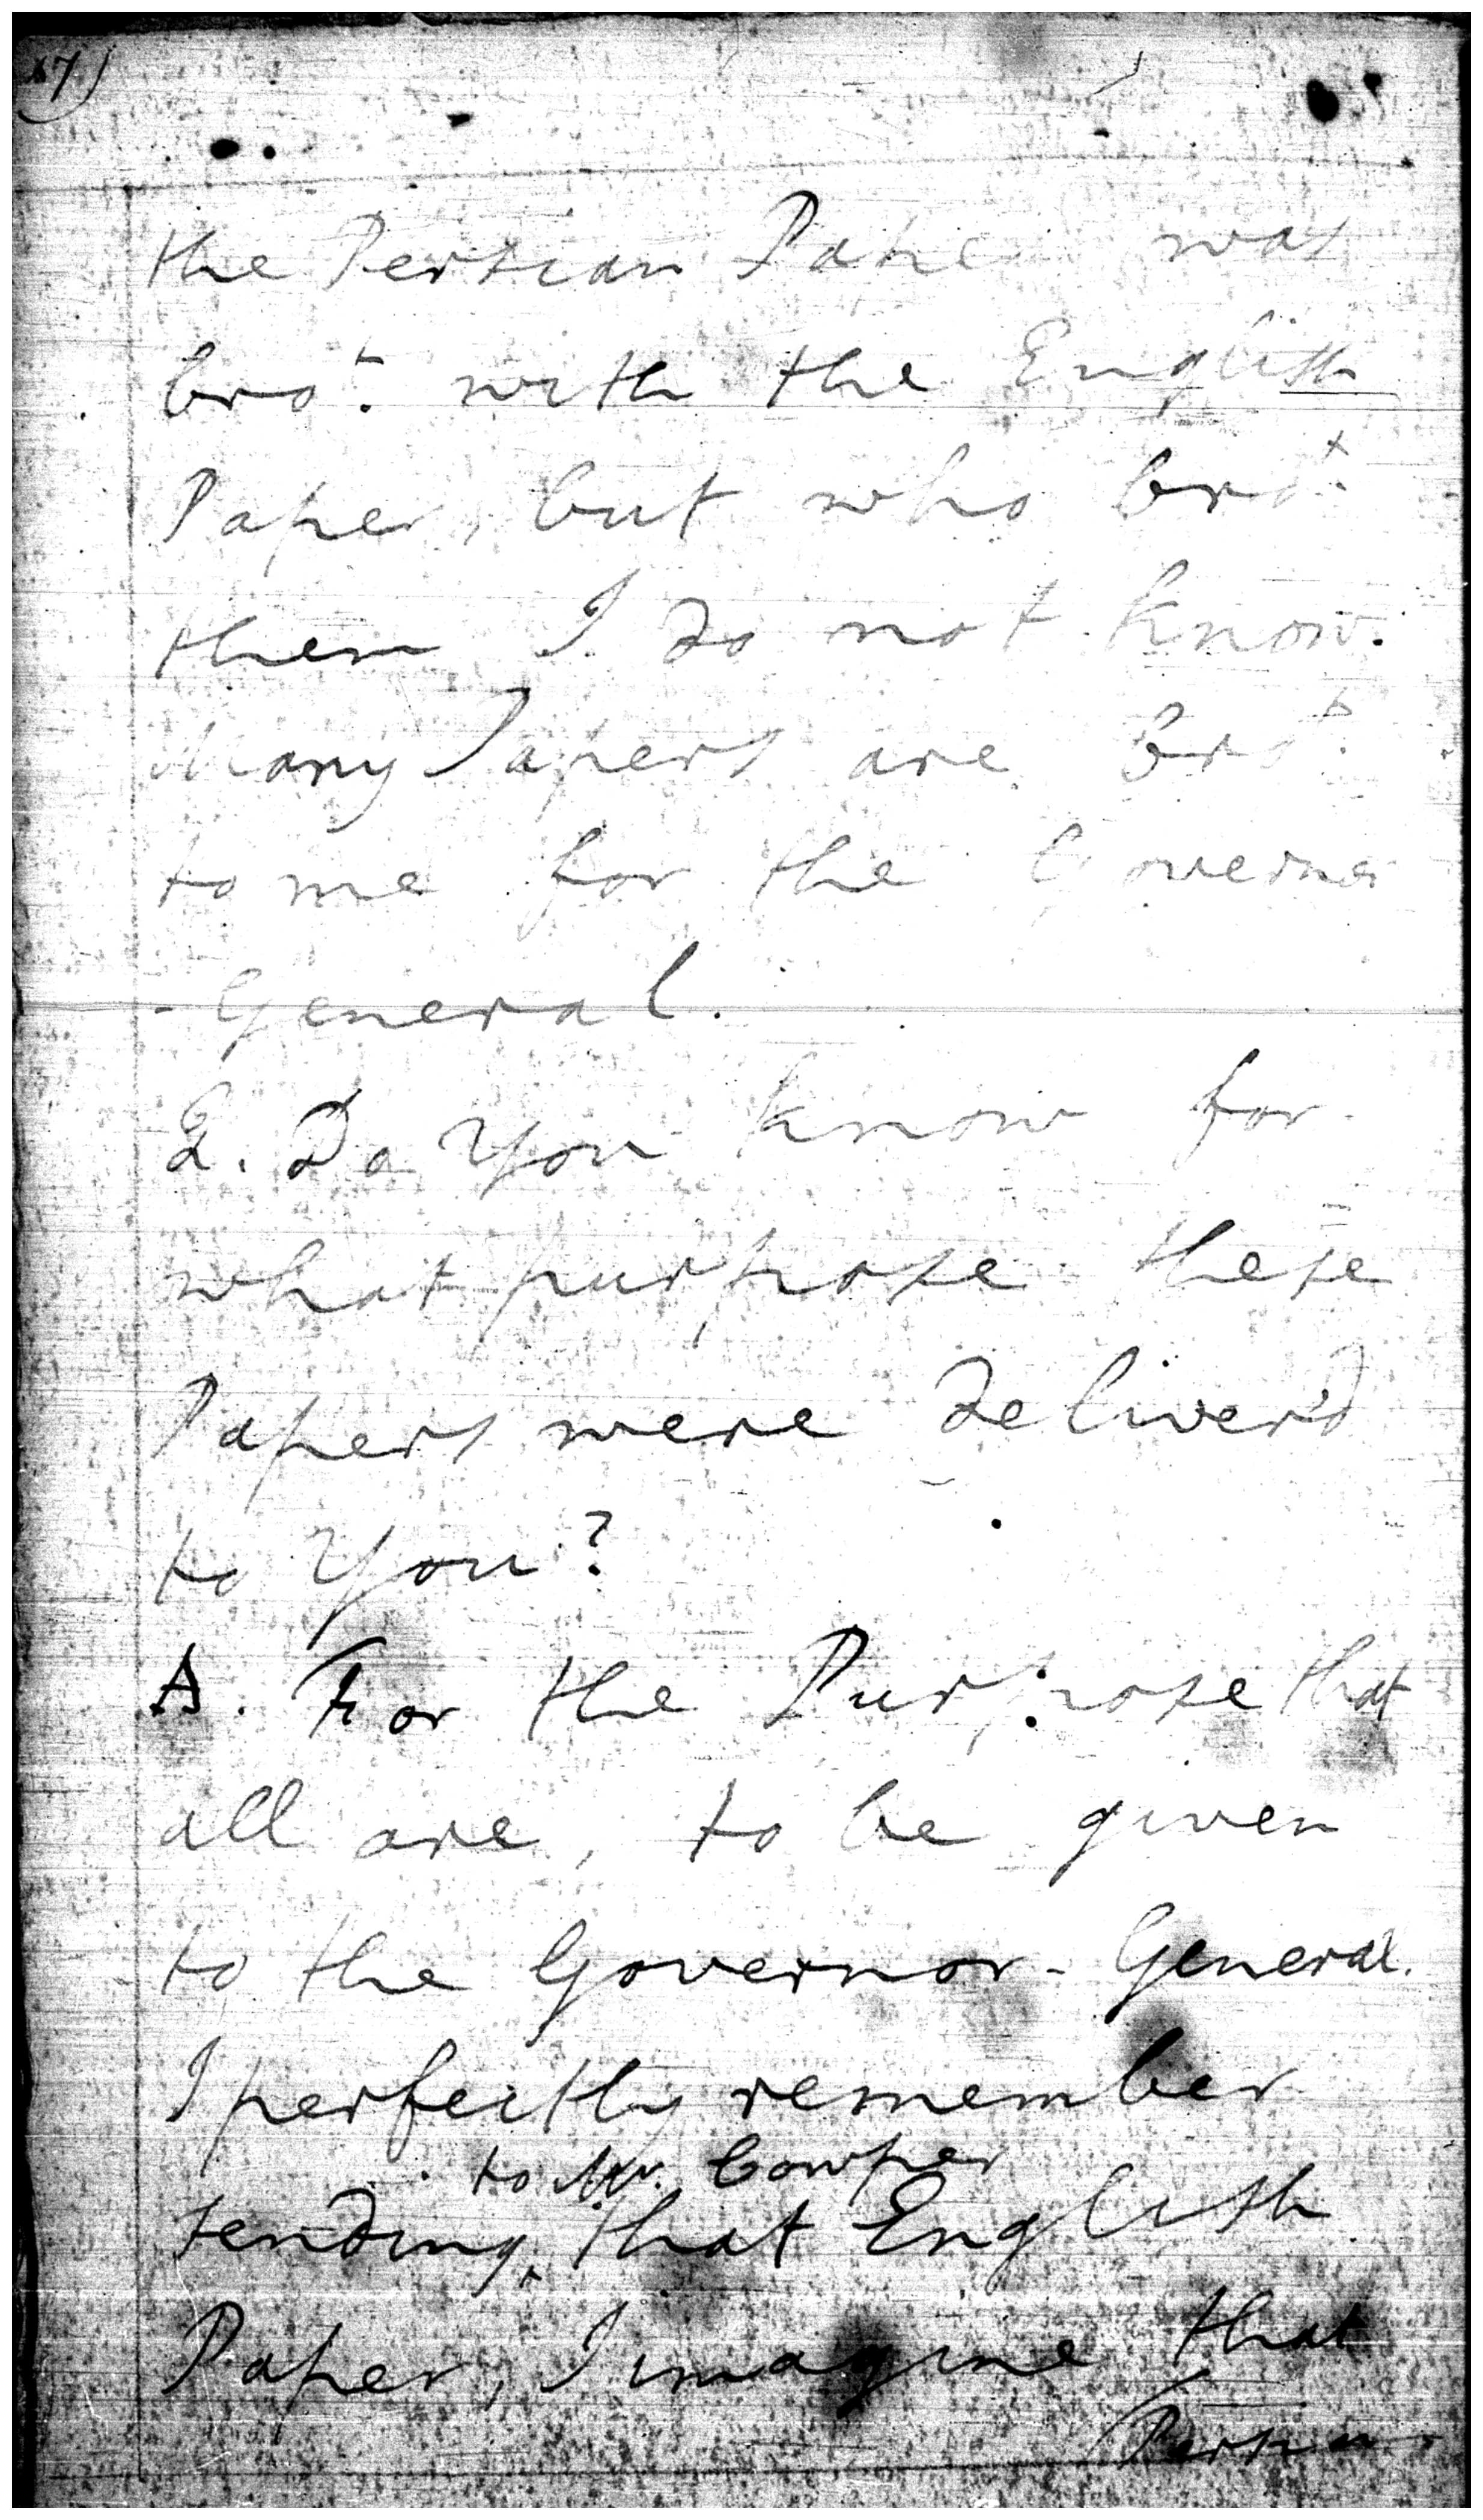 the Persian Paper was
bro.t with the English
Paper, but who bro.t
them I do not know.
Many Papers are bro.t
to me for the Governor
-General.
Q. Do You know for
what purpose these
Papers were deliver'd
to You?
A. For the Purpose that
all are, to be given
to the Governor-General.
I perfectly remember
to Mr. Cowper
sending ‸ that English
Paper, I imagine that